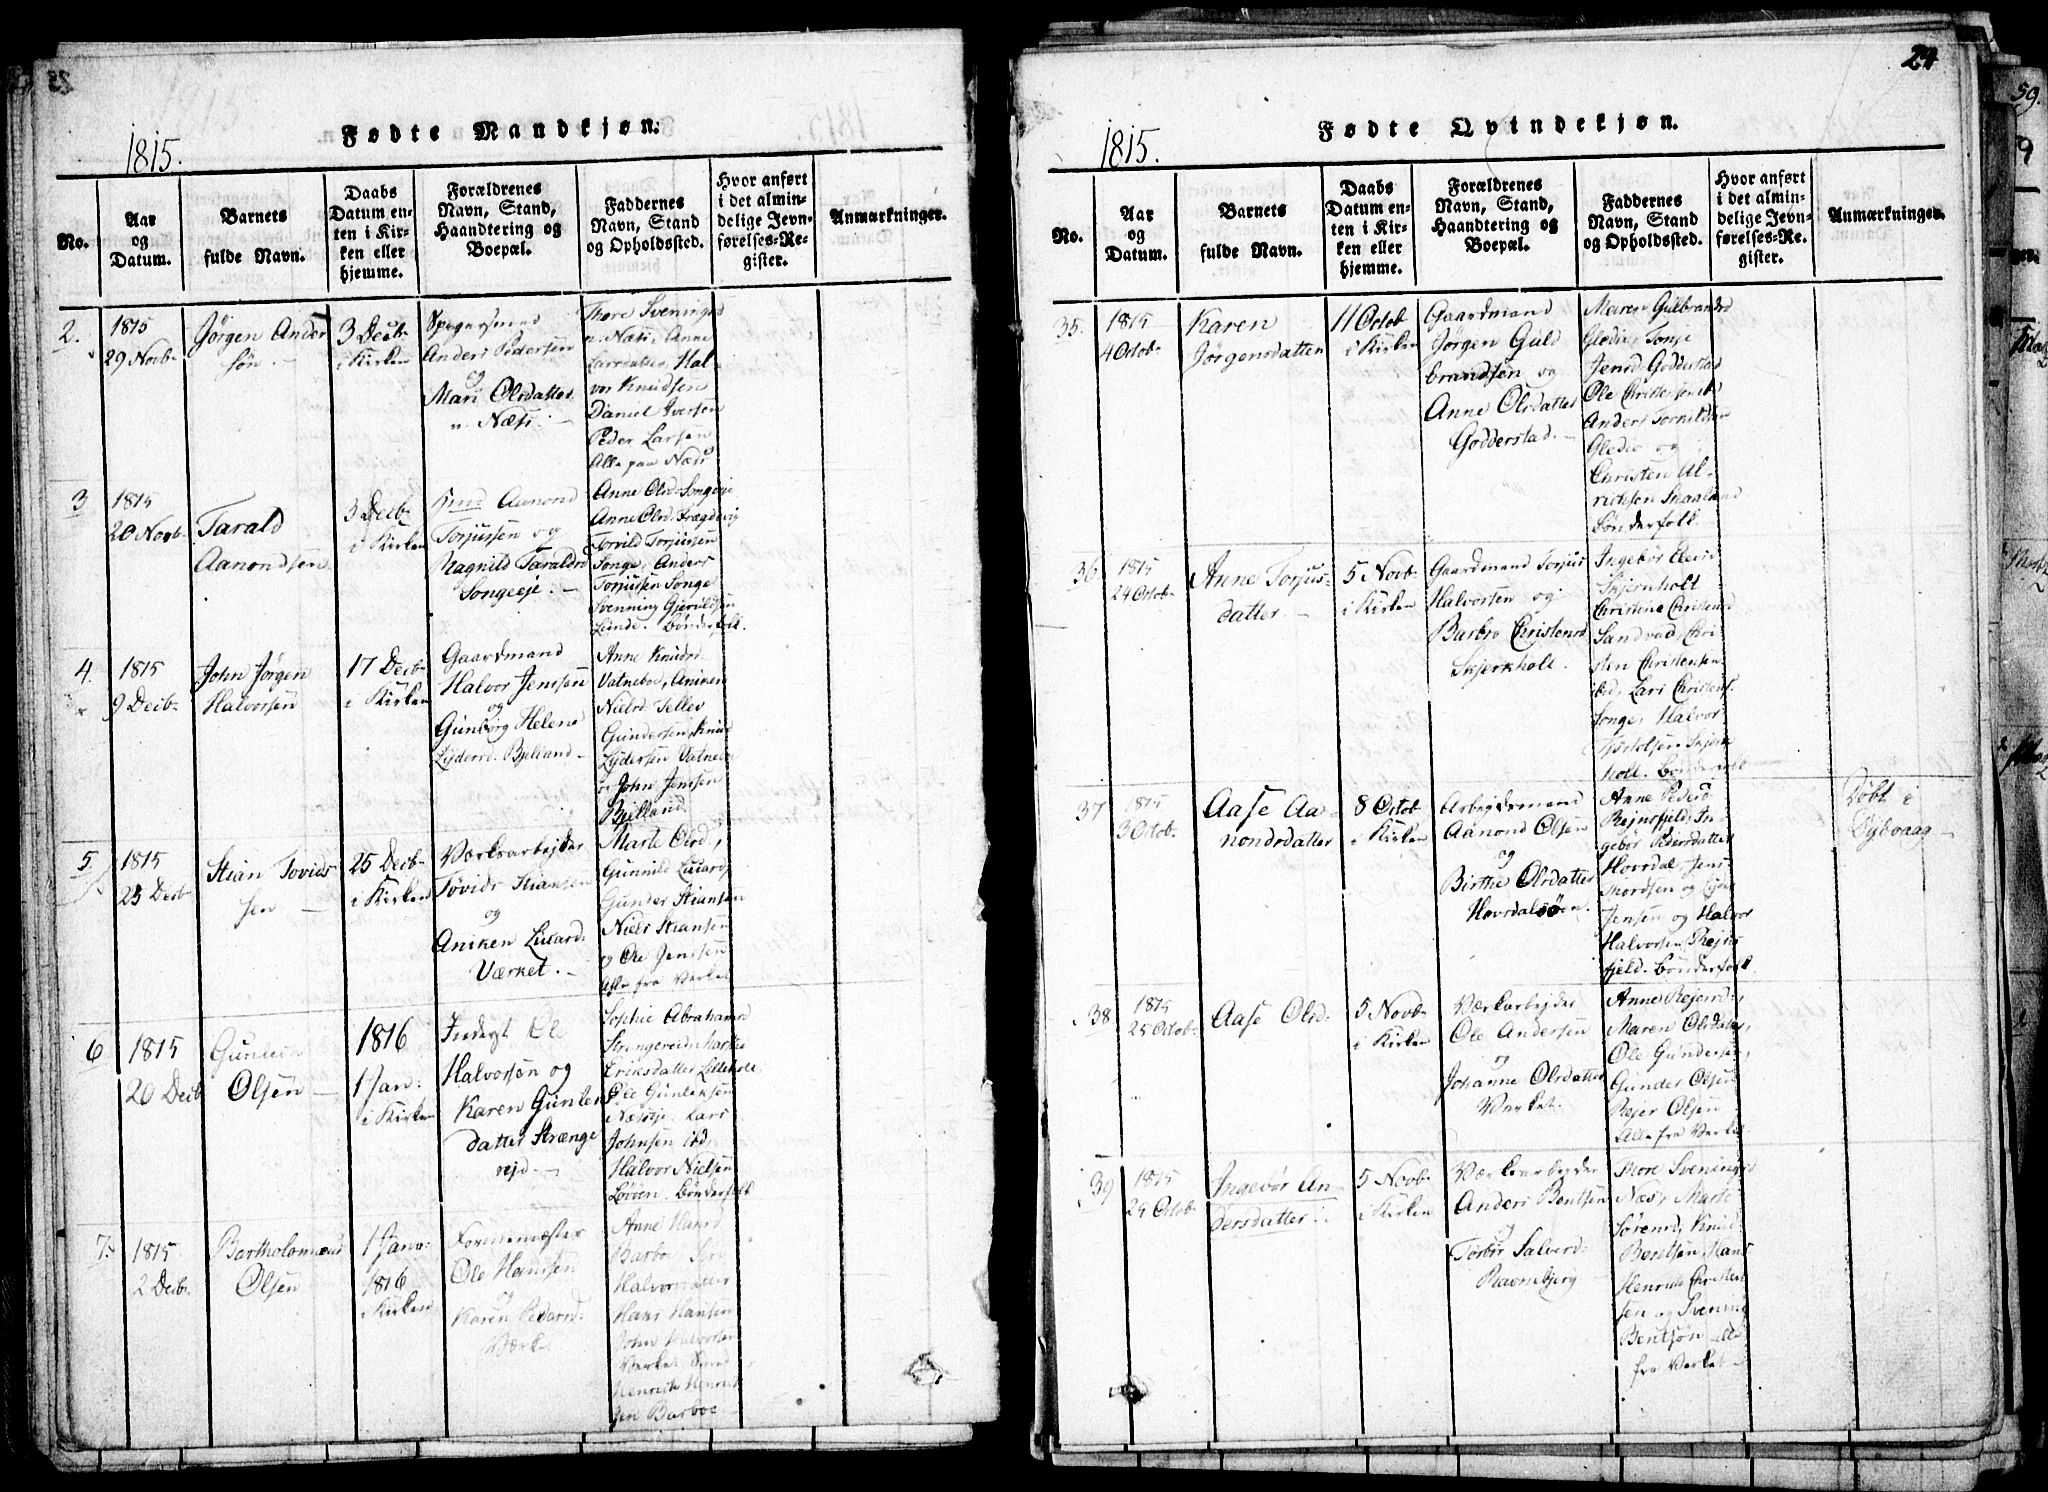 Fødte Mandkjøn.
1815.
No.
Aar
og
Datum.
Barnets
fulde Navn.
Daabs
Datum en-
ten i Kir-
ken eller
hjemme.
Forældrenes
Navn, Stand,
Haandtering og
Boepæl.
Faddernes
Navn, Stand
og Opholdssted.
Hvor anført
i det almin-
delige Jevn-
førelses-Re-
gister.
Anmærkninger.
2.
1815
29 Novb
Jørgen Ander
søn.
3 Decb
i Kirken
Anders Pedersen
og
Mari Olsdatter
Næss.
Thore Svenings
Næss, Anne
Larsdatter, Hal-
vor Knudsen
Daniel Iversen
Peder Larsen
Alle paa Næss
3
1815
20 Novb
Tarald
Aanondsen
3 Decb
i Kirken
Aanond
Torjussen og
Ragnild Taraldsd
Songeeje.
Anne Olsd Songeeje
Anne Olsd
Torvild Torjussen
Songe, Anders
Torjussen Songe
Svenning Gjeruldsen
Lunde. Bønderfolk.
4.
1815
9 Decb
John Jørgen
Halvorsen
17 Decb
i Kirken
Gaardmand
Halvor Jensen
og
Gunborg Helene
Zydersd. Bjelland
Anne Knudsd.
Vatneboe, Aniken
Nielsd.
Gundersen, Knud
Zydersen Vatnebo
John Jensen
Bjelland
5.
1815
23 Decb
Stian Tovids
sen
25 Decb
i Kirken
Værksarbejder
Tøvids Stiansen
og
Aniken Livard.
Værket.
Marte Olsd,
Gunnild Livard,
Gunder Stiansen
Niels Stiansen
og Ole Jensen
Alle fra Verket
6
1815
20 Decb
Gunleik
Olsen
1816
1 Jan:
i Kirken
Inderst Ole
Halvorsen og
Karen Gunlei
datter Strænge
rejd.
Sophie Abrahamsd
Strengereid, Marthe
Eriksdatter Lilleholt,
Ole Gunleksen
Lars
Johnsen ibd,
Halvor Nielsen
Løvøen. Bønderfolk
7.
1815
2 Decb
Bartholomæus
Olsen
1 Janu:
1816
i Kirken
Formemæster
Ole Hansen
og
Karen Pedersd.
Værket
Anne Hansd
Barboe
Halvorsdatter
Hans Hansen
John Halvorsen
Verket
Henrik Henrik
sen Barboe
24
Fødte Qvindekjøn.
1815.
No.
Aar
og
Datum.
Barnets
fulde Navn.
Daabs
Datum en-
ten i Kir-
ken eller
hjemme.
Forældrenes
Navn, Stand,
Haandtering og
Boepæl.
Faddernes
Navn, Stand
og Opholdssted.
Hvor anført
i det almin-
delige Jevn-
førelses-Re-
gister.
Anmærkninger.
35.
1815
4 Octob
Karen
Jørgensdatter
11 Octob
i Kirken
Gaardmand
Jørgen Guld
brandsen og
Anne Olsdatter
Godderstad.
Maren Gulbrandsd
Gledie, Tonje
Jensd. Godderstad
Ole Christensen ibd
Anders Torkildsen
Gledie og
Christen Al-
richsen Skaaland
Bønderfolk.
36
1815
24 Octob
Anne Torjus-
datter.
5 Novb
i Kirken
Gaardmand Torjus
Halvorsen og
Barbro Christensd
Skjerkholt.
Ingebør
Skjerkholt
Christense Christensd
Sandvad, Chri-
sten Christensen
ibd, Lars Christens.
Songe, Halvor
Skjerk
holt. Bønderfolk
37
1815
3 Octob
Aase Aa-
nondsdatter
8 Octob
i Kirken
Arbejdsmand
Aanond Olsen
og
Birthe Olsdatter
Hovdalsøen.
Anne Pedersd
Rejersfjeld, In-
gebør Pedersdatter
Hovdal, Jens
Jensen og Halvor
Halvorsen Rejers
fjeld. Bønderfolk
Døbt i
Dybvaag
38
1815
25 Octob
Aase Olsd:
5 Novb
i Kirken
Værksarbejder
Ole Andersen
og
Johanne Olsdatter
Verket.
Anne Rejersd.,
Maren Olsdatter,
Ole Gundersen,
Gunder Olsen
Rejer Olsen
Alle fra Verket
39
1815
24 Octob
Ingebør An-
dersdatter
5 Novb
i Kirken
Værksarbejder
Anders Bentsen
og
Torbør Salvesd.
Ravnebjerg
Thore Sveningsd
Næs, Marte
Sørensd, Knud
Bentsen, Hans
Henrik Christen
sen og Svening
Bentsøn alle
fra Verket